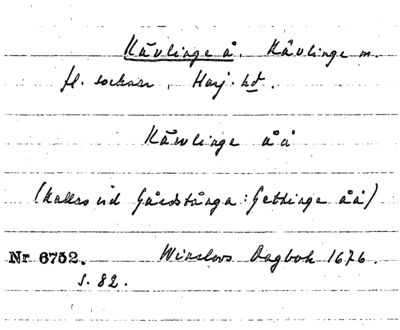 Kävlinge å. Kävlinge m.
fl. socknar, Harj. hd.
Käwlinge åå
(kallas vid Gårdstånga: Gettinge åå)
Nr 6752. Winslovs Dagbok 1676.
s. 82.